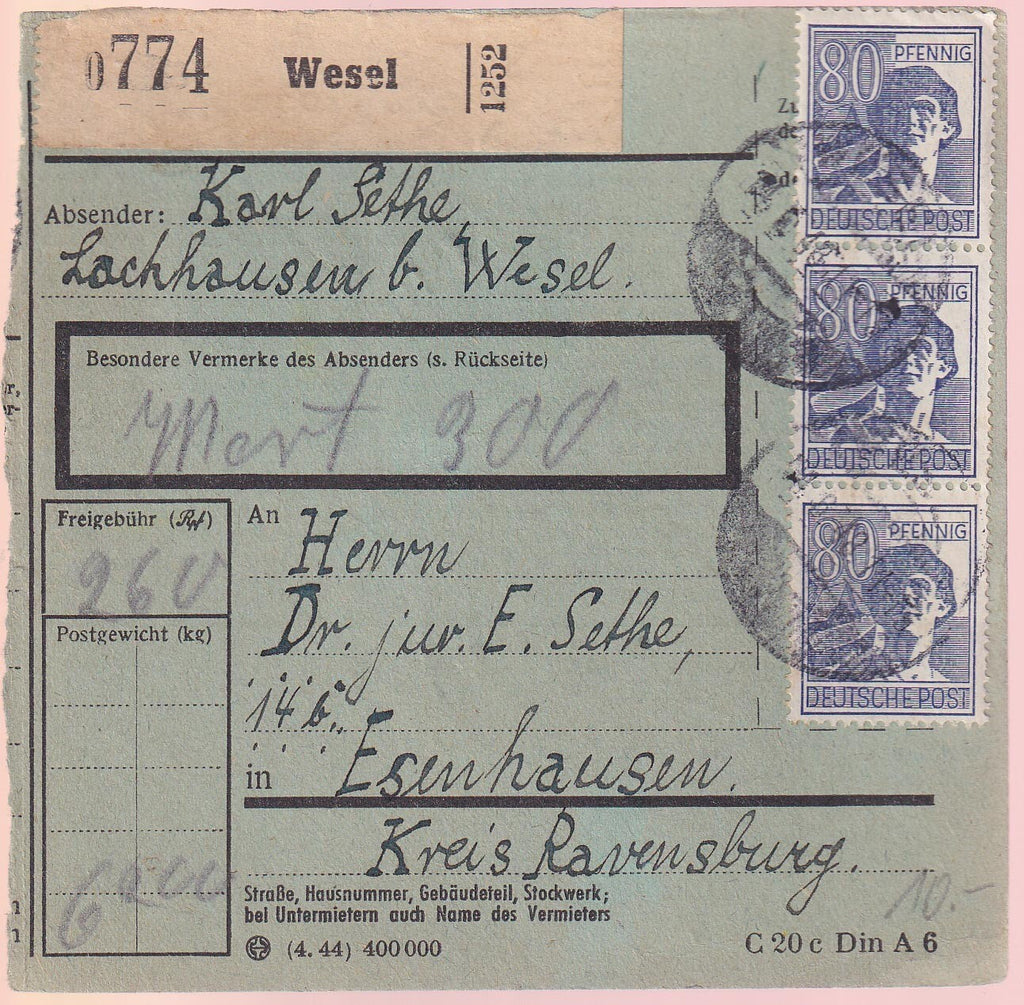 0774 Wesel 1252
80 PFENNIG
DEUTSCHE POST
Absender: Karl Sethe,
Lackhausen b. Wesel.
80 PFENNIG
DEUTSCHE POST
Besondere Vermerke des Absenders (s. Rückseite)
Wert 300
80 PFENNIG
DEUTSCHE POST
Freigebühr (Rpf)
260
Postgewicht (kg)
6200
An Herrn
Dr. jur. E. Sethe,
14b.
in Esenhausen.
Kreis Ravensburg.
Straße, Hausnummer, Gebäudeteil, Stockwerk;
bei Untermietern auch Name des Vermieters
10.-
(4. 44) 400 000
C 20 c Din A 6